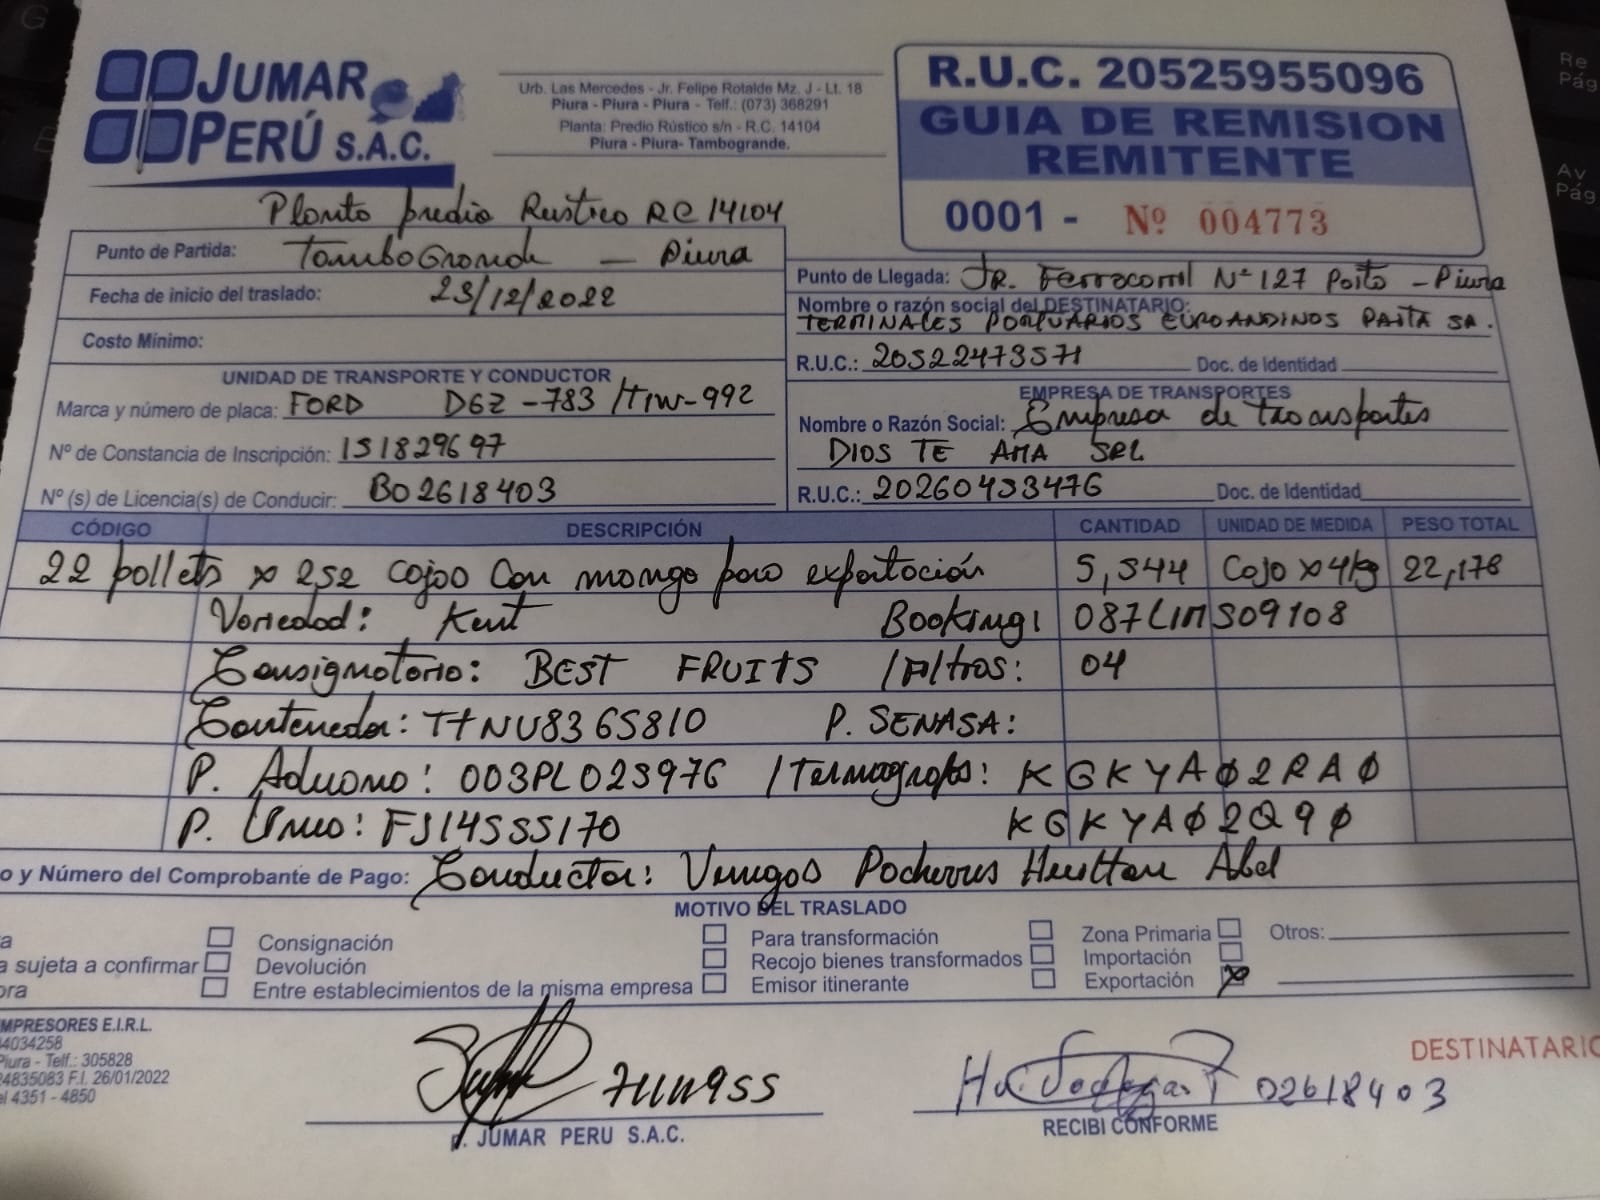 JUMAR
PERÚ S.A.C.
Urb. Las Mercedes - Jr. Felipe Rotalde Mz. J - Lt. 18
Piura - Piura - Piura - Telf.: (073) 368291
Planta: Predio Rústico s/n - R.C. 14104
Piura - Piura- Tambogrande.
R.U.C. 20525955096
GUIA DE REMISION
REMITENTE
0001 - Nº 004773
Planta predio Rustico RC 14104
Punto de Partida: TamboGrande - Piura
Fecha de inicio del traslado: 23/12/2022
Costo Mínimo:
Punto de Llegada: Jr. Ferrocarril Nº 127 Paita - Piura
Nombre o razón social del DESTINATARIO:
TERMINALES PORTUARIOS EUROANDINOS PAITA SA.
R.U.C.: 20522473571 Doc. de Identidad
UNIDAD DE TRANSPORTE Y CONDUCTOR
Marca y número de placa: FORD D6Z-783 /
Nº de Constancia de Inscripción: 151829697
Nº (s) de Licencia(s) de Conducir: B02618403
EMPRESA DE TRANSPORTES
Nombre o Razón Social: Empresa de transportes
DIOS TE AMA SRL
R.U.C.: 20260453476 Doc. de Identidad
CÓDIGO DESCRIPCIÓN CANTIDAD UNIDAD DE MEDIDA PESO TOTAL
22 pallets x 252 cajas con mango para exportación 5,544 Caja x 4kg 22,178
Variedad: Kent Booking: 087LIMS09108
Consignatario: BEST FRUITS / Filtros: 04
Contenedor: TTNU8365810 P. SENASA:
P. Aduana: 003PL023976 / Termografos: KGKYAØ2RAØ
P. Linea: FJ14555170 KGKYAØ2Q9Ø
o y Número del Comprobante de Pago: Conductor: Abel
MOTIVO DEL TRASLADO
a
a sujeta a confirmar
ora
Consignación
Devolución
Entre establecimientos de la misma empresa
Para transformación
Recojo bienes transformados
Emisor itinerante
Zona Primaria
Importación
Exportación x
Otros:
MPRESORES E.I.R.L.
4034258
Piura - Telf.: 305828
4835083 F.I. 26/01/2022
el 4351 - 4850
P. JUMAR PERU S.A.C.
02618403
RECIBI CONFORME
DESTINATARIO